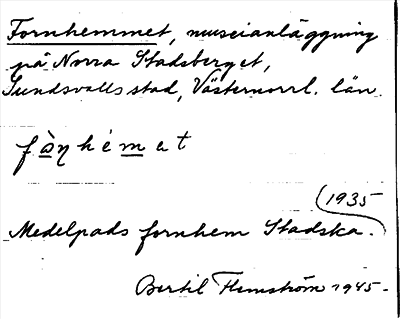 Fornhemmet, museianläggning
på Norra Stadsberget,
Sundsvalls stad, Västernorrl. län.
fàṇhémet
(1935
Medelpads fornhem Stadska.
Bertil Flemström 1945-